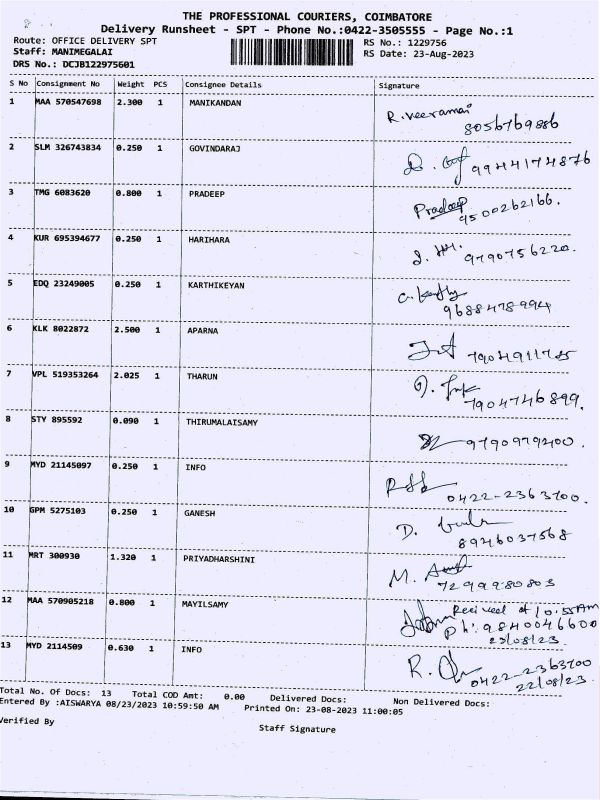 THE PROFESSIONAL COURIERS, COIMBATORE
Delivery Runsheet - SPT - Phone No.:0422-3505555 - Page No.:1
Route: OFFICE DELIVERY SPT
RS No.: 1229756
Staff: MANIMEGALAI
RS Date: 23-Aug-2023
DRS No.: DCJB122975601
S No Consignment No Weight PCS Consignee Details Signature
1 MAA 570547698 2.300 1 MANIKANDAN R.veeramani
8056769886
2 SLM 326743834 0.250 1 GOVINDARAJ 9944174876
3 TMG 6083620 0.800 1 PRADEEP Pradeep
9500262166.
4 KUR 695394677 0.250 1 HARIHARA 9790756220.
5 EDQ 23249005 0.250 1 KARTHIKEYAN
9688478994
6 KLK 8022872 2.500 1 APARNA 7904911745
7 VPL 519353264 2.025 1 THARUN
7904746899.
8 STY 895592 0.090 1 THIRUMALAISAMY
9790979200.
9 MYD 21145097 0.250 1 INFO
0422-2363700.
10 GPM 5275103 0.250 1 GANESH D.
8946037568
11 MRT 300930 1.320 1 PRIYADHARSHINI M.
7299980803
12 MAA 570905218 0.800 1 MAYILSAMY Received at 10.55Am
ph: 9840046600
23/08/23
13 MYD 2114509 0.630 1 INFO R.
0422-2363700
22/08/23
Total No. Of Docs: 13 Total COD Amt: 0.00 Delivered Docs: Non Delivered Docs:
Entered By :AISWARYA 08/23/2023 10:59:50 AM Printed On: 23-08-2023 11:00:05
Verified By
Staff Signature